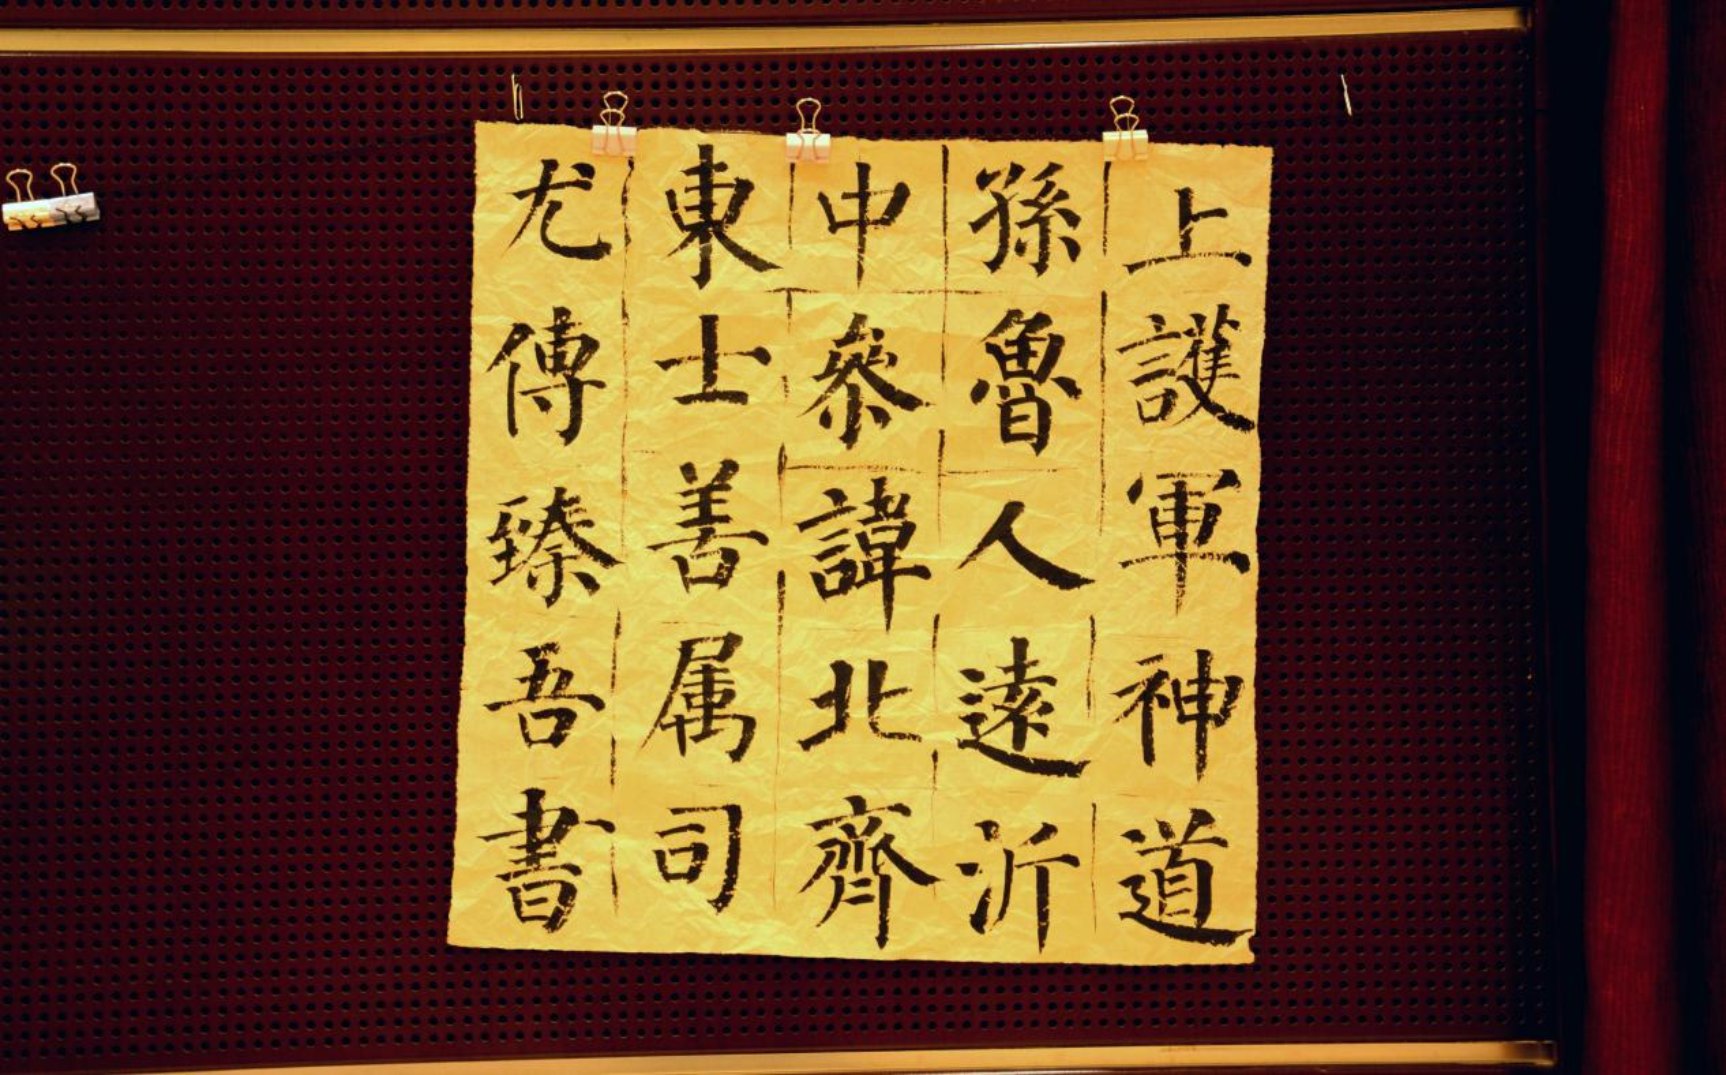 上護軍神道
孫魯人遠沂
中參諱北齊
東士善属司
尤傳臻吾書